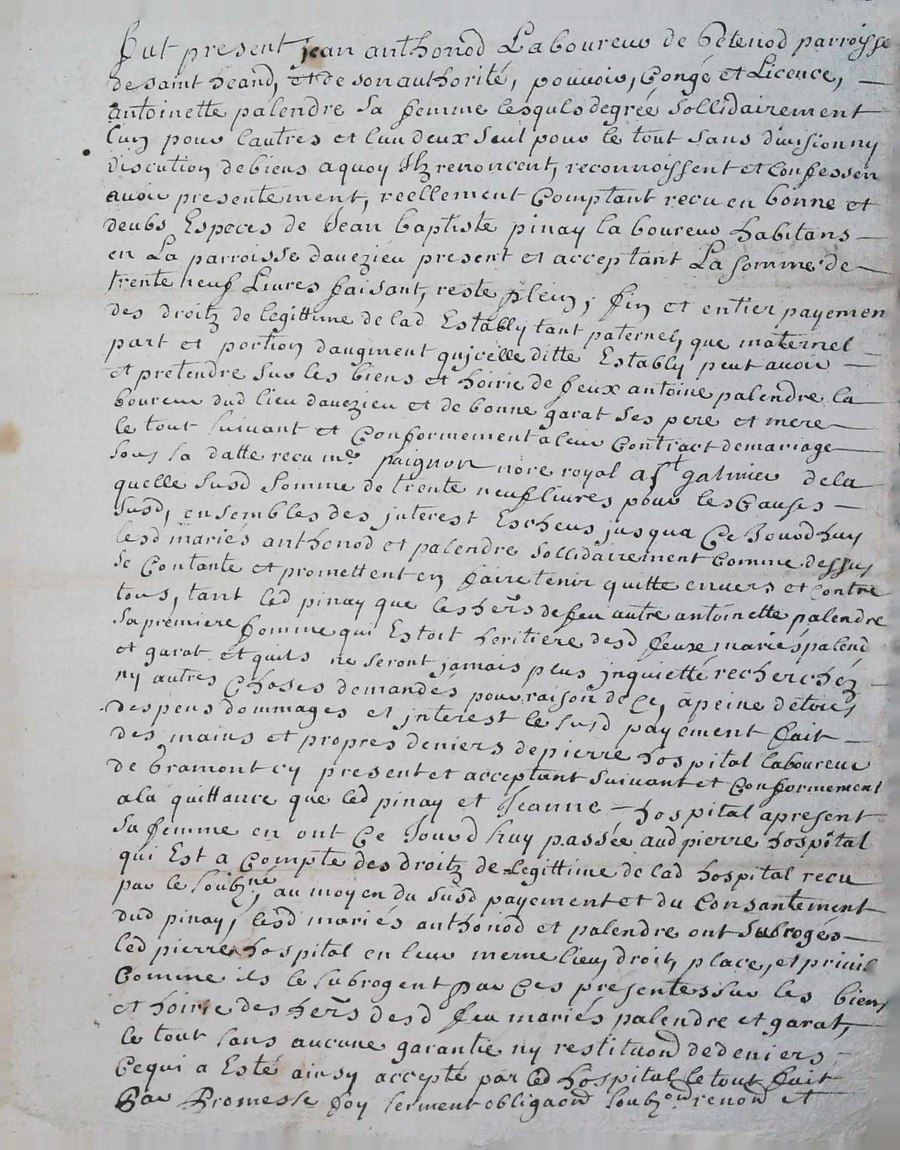 fut present jean anthonod Laboureur de betenod parroisse
de saint heand, et de son authorité, pouvoir, Congé et Licence, —
antoinette palendre sa femme lesquls degrée sollidairement
lun pour lautres et lun deux seul pour le tout sans division ny
discution de biens a quoy Ilz renoncent, reconnoissent et Confessen
avoir presentement, reellement Comptant recu en bonne et
deubs Especes de Jean baptiste pinay laboureur habitans —
en La parroisse davezieu present et acceptant La somme de —
trente neuf Livres faisant, reste plein, fin et entier payemen
des droitz de legittime de lad Establytant paternel, que maternel —
part et portion daugment qujcelle ditte Establÿ peut avoir —
et pretendre sur les biens et hoirie de feux antoine palendre la
boureur dud lieu davezieu et de bonne garat ses pere et mere —
le tout suivant et Conformement a leur Contract de mariage —
sous sa datte recu me paignon nore royal a st galmier de la
quelle susd somme de trente neuf livres pour les Causes —
susd, ensembles des jnterest Escheus jusqua Ce Jourdhuy
lesd mariés anthonod et palendre sollidairement Comme dessus
se Contante et promettent en faire tenir quitte envers et Contre
tous, tant led pinay que les hers de feu autre antoinette palendre
sa premiere femme qui Estoit heritiere desd feux mariés palend
et garat et quils ne seront jamais plus jnquietté recherchéz —
ny autres Choses demandés pour raison de Ce, a peine de tous
despens dommages et jnterest le susd payement fait —
des mains et propres deniers de pierre hospital laboureur
de gramont cy present et acceptant suivant et Conformement
a la quittance que led pinay et Jeanne — hospital apresent
sa femme en ont Ce Jourdhuy passée aud pierre hospital
qui Est a Compte des droitz de legittime de lad hospital recu
par le soubzne, au moyen du susd payement et du Consantement
dud pinay, lesd mariés anthonod et palendre ont subrogés —
led pierre hospital en leur meme lieu, droit, place, et privil
Comme ils le subrogent par Ces presentes sur les biens
et hoirie des hers desd feu mariés palendre et garat,
le tout sans aucune garantie ny restituon de deniers —
Ce qui a Esté ainsy accepté par led hospital le tout fait
Par Promesse foy serment obligaon soubzon renon et